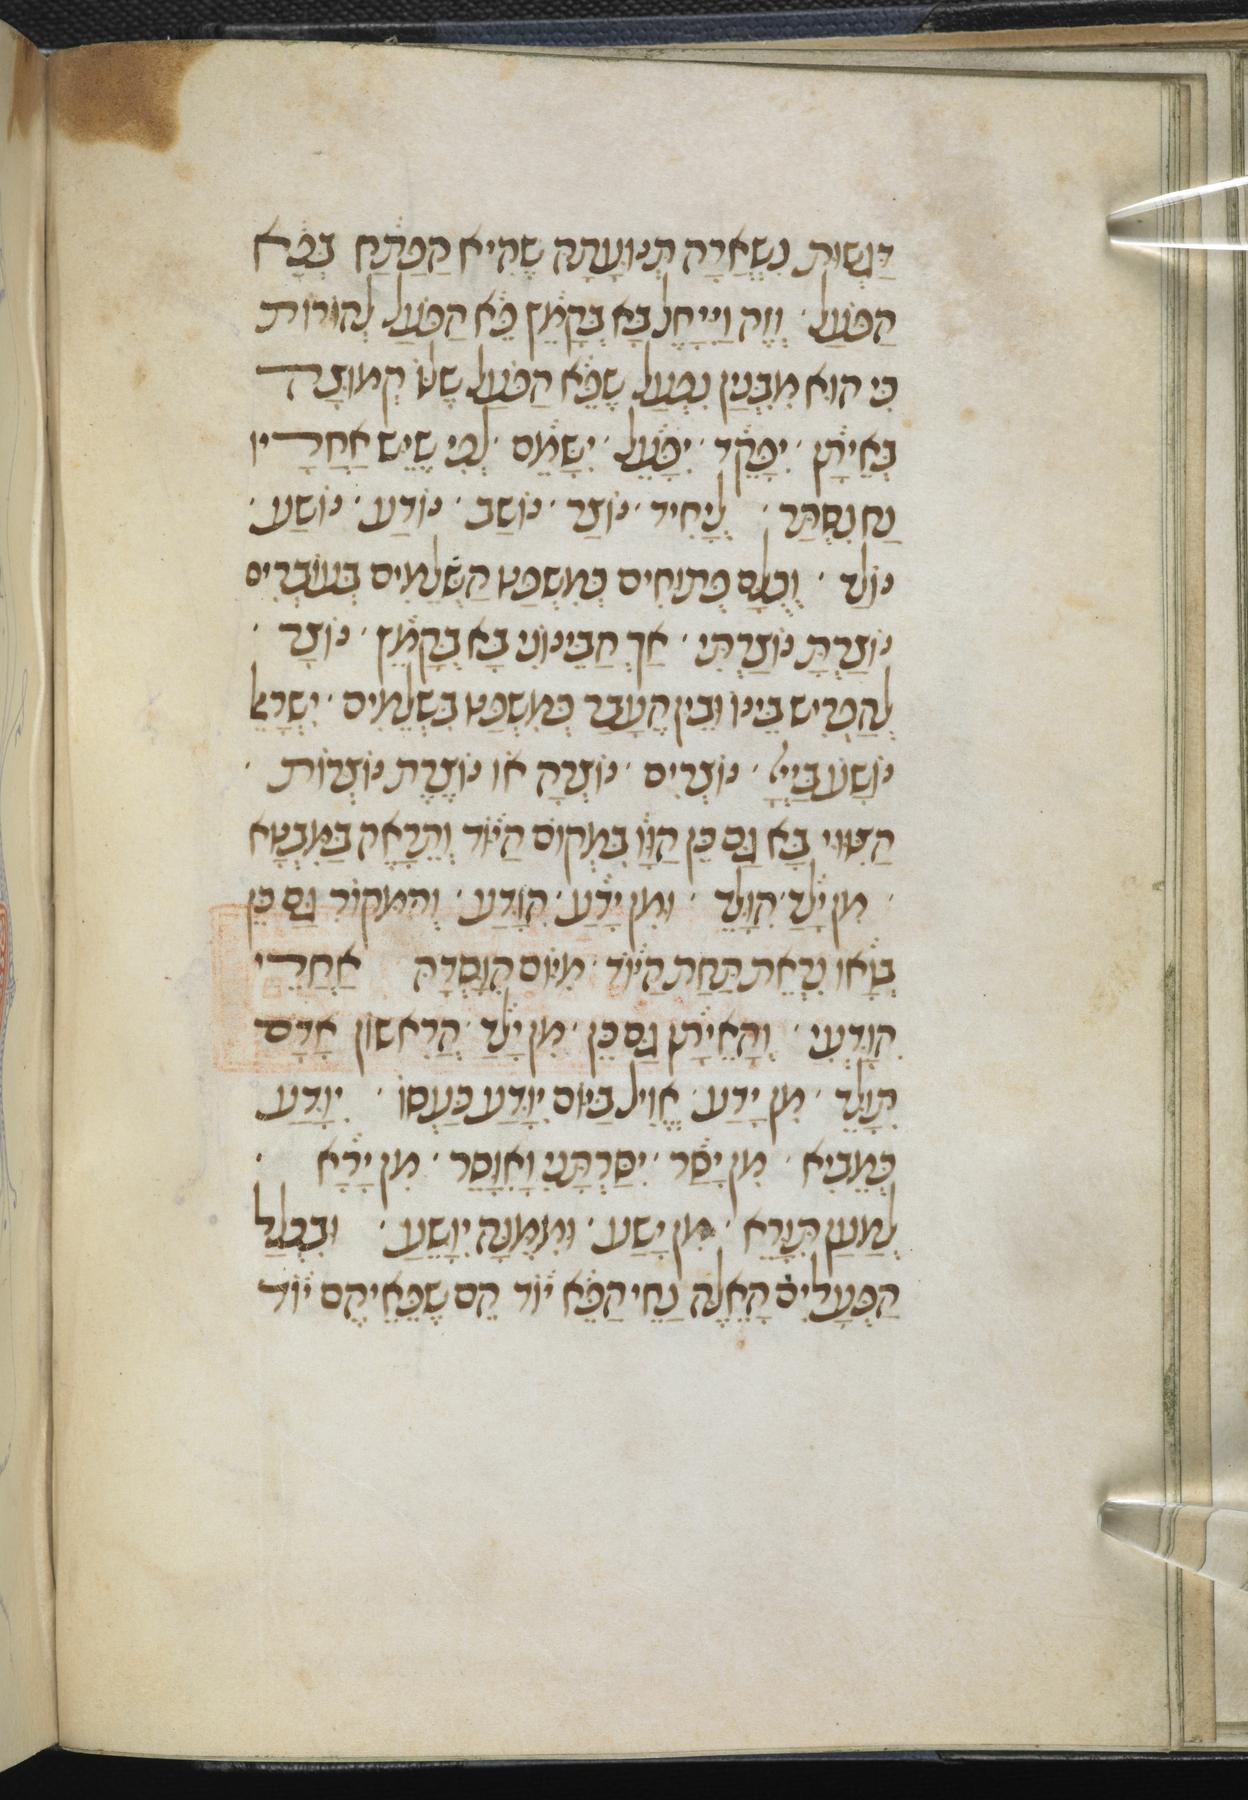 דַּגְשׁוּת נִשְׁאֲרָה תְּנוּעָתָהּ שֶׁהִיא הַפַּתַּח בְּפֵ֗א
הַפּוֹעַל · וְזֶה וַיִּיָחֶל בָּא בְּקָמֵץ פֵ֗א הַפּוֹעַל לְהוֹרוֹת
כִּי הוּא מִבִּנְיַן נִפְעַל שֶׁפֵ֗א הַפּוֹעַל שֶׁלּוֹ קְמוּצָה
בְּאֵיתָן · יִפָּקֵד · יִפָּעֵל · יִשָּׁמֵם · לְפִי שֶׁיֵּשׁ אַחֲרָיו
נַח נִסְתַּר · לְיָחִיד · נוֹצַר · נוֹשַׁב · נוֹדַע · נוֹשַׁע ·
נוֹלַד · וְכֻלָּם פְּתוּחִים כְּמִשְׁפַּט הַשְּׁלֵמִים בְּעוֹבְרִים
נוֹצַרְתָּ נוֹצַרְתִּי · אַךְ הַבֵּינוֹנִי בָּא בְּקָמֵץ · נוֹצָר ·
לְהַפְרִישׁ בֵּינוֹ וּבֵין הֶעָבַר כְּמִשְׁפַּט בִּשְׁלֵמִים · יִשְׂרָאֵל
נוֹשַׁע בַּיְיָ · נוֹצָרִים · נוֹצָרָה אוֹ נוֹצֶרֶת נוֹצָרוֹת ·
הַצִּוּוּי בָּא גַּם כֵּן הַוָּו בִּמְקוֹם הַיּוֹד וְהֵרָאֶה בַּמִּבְטָא
· מִן יָלַד · הִוָּלֵד · וּמִן יָדַע · הִוָּדַע · וְהַמָּקוֹר גַּם כֵּן
בְּוָאו נִרְאֵת תַּחַת הַיּוֹד · מִיּוֹם הִוָּסְדָהּ אַחֲרֵי
הִוָּדְעִי · וְהָאֵיתָן גַּם כֵּן · מִן יָלַד · הֲרִאשׁוֹן אָדָם
תִּוָּלֵד · מִן יָדַע · אֱוִיל בַּיּוֹם יִוָּדַע כַּעְסוֹ · יִוָּדַע
כְּמֵבִיא · מִן יָסַר · יִסַּרְתַּנִי וָאִוָּסֵר · מִן יָרֵא ·
לְמַעַן תִּוָּרֵא · מִן יָשַׁע · וּמִמֶּנָּה יִוָּשֵׁעַ · וּבִכְלַל
הַפְּעָלִים הָאֵלֶּה נַחֵי הַפֵ֗א יוֹד הֵם שֶׁפֵּאֵיהֶם יוֹד